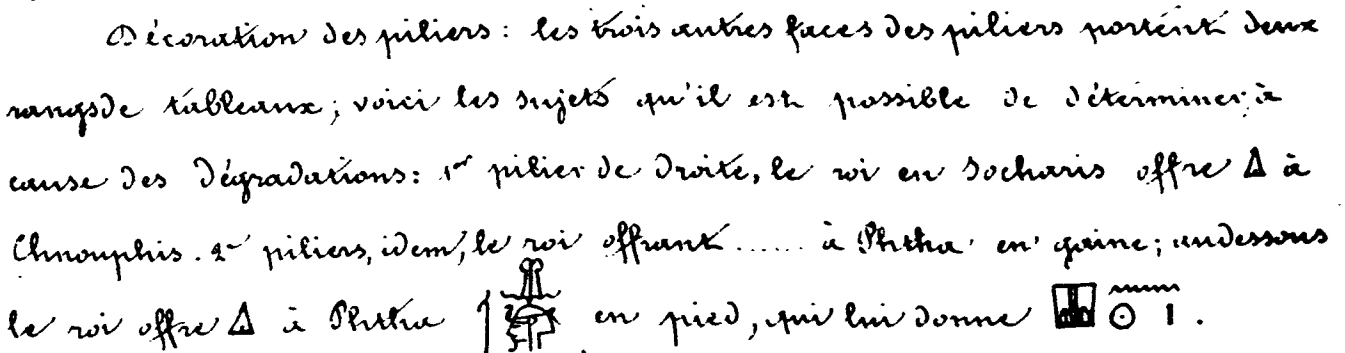 Décoration des piliers : les trois autres faces des piliers portent deux
rangs de tableaux ; voici les sujets qu'il est possible de déterminer, à
cause des dégradations : 1er pilier de droite, le roi en Socharis offre à
Chnouphis. 2e piliers, idem, le roi offrant ...... à Phtha en gaine ; au dessous
le roi offre à Phtha en pied, qui lui donne